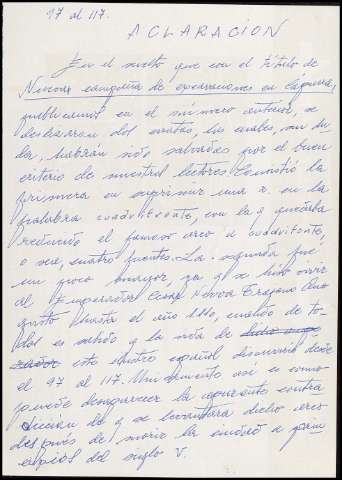 97 al 117.
ACLARACION
En el suelto que con el título de
Nueva campaña de excavaciones en Cáparra,
publicamos en el número anterior, se
deslizaron dos erratas, las cuales, sin du
da, habrán sido salvadas por el buen
criterio de nuestros lectores. Consistió la
primera en suprimir una r. en la
palabra cuadrifronte, con la q quedaba
reducido el famoso arco a cuadrifonte,
o sea, cuatro fuentes. La segunda fué
un poco mayor, ya q se hizo vivir
al Emperador Cesar Nerva Trajano Au
gusto hasta el año 1110, cuando de to-
dos es sabido q la vida de
este ilustre español discurrió desde
el 97 al 117. Unicamente así es como
puede desaparecer la aparente contra
dicción de q se levantara dicho arco
después de morir la ciudad a prin
cipios del siglo V.